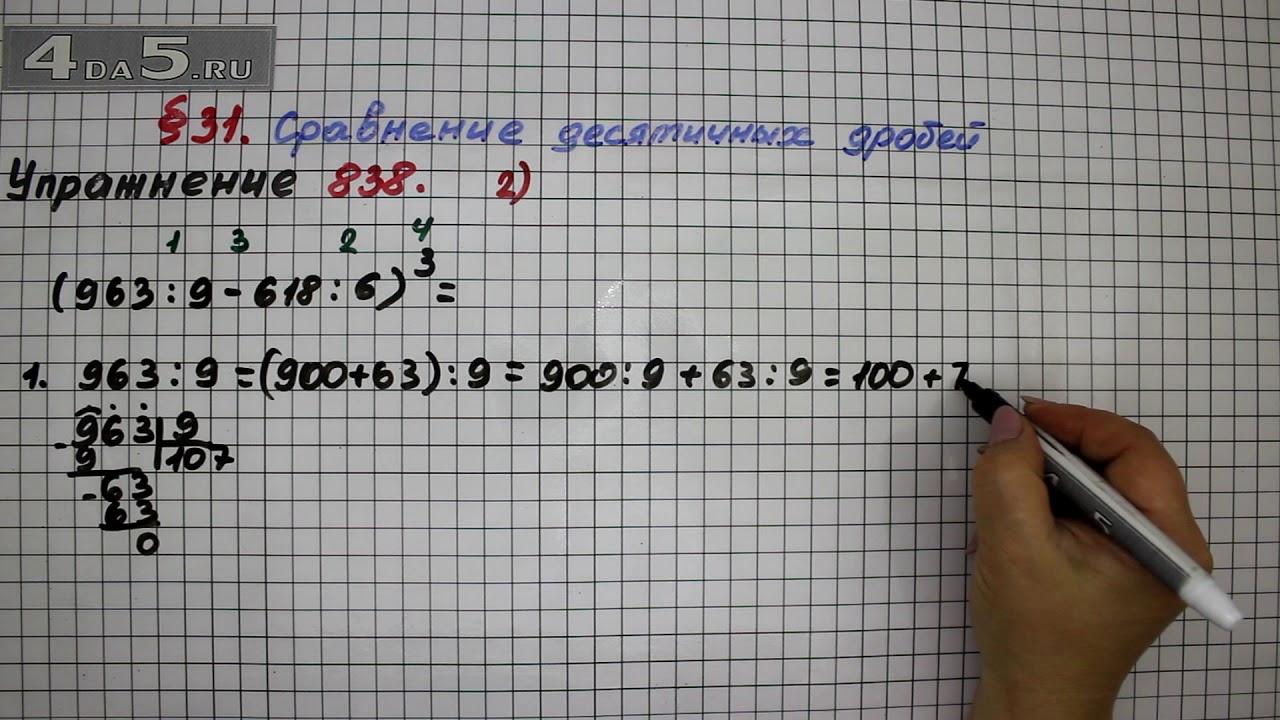 4DA5.RU
§31. Сравнение десятичных дробей
Упражнение 838. 2)
1 3 2 4
(963:9-618:6)³=
1. 963:9=(900+63):9=900:9+63:9=100+7
-963|9
9 |107
-63
63
0